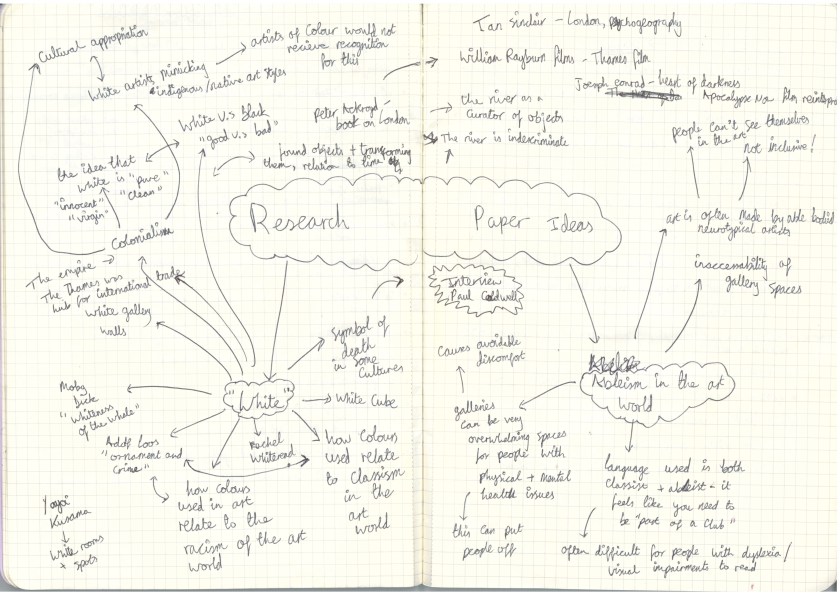 Cultural appropriation
White artists mimicking
indigenous/native art styles
artists of Colour would not
recieve recognition
for this
White V.s black
"good v.s bad"
the idea that
white is "pure"
"innocent" "clean"
"virgin"
Colonialism
The empire
The Thames was
hub for international trade
White gallery
walls
Peter Ackroyd -
book on London
found objects + transforming
them, relation to time
Research Paper Ideas
Ian Sinclair - London, psychogeography
William Rayburn films - Thames film
Joseph Conrad - heart of darkness
Apocalypse Now film
the river as a
curator of objects
The river is indescriminate
people can't see themselves
in the art
not inclusive!
art is often made by able bodied
neurotypical artists
inaccessability of
gallery spaces
Interview
Paul Coldwell
"White"
symbol of
death
in some
Cultures
White Cube
how Colours
used relate
to Classism
in the
art
world
Rachel
Whiteread
how colours
used in art
relate to the
racism of the art
world
Adolf Loos
"ornament and
Crime"
Moby
Dick
"whiteness
of the whale"
Yayoi
Kusama
white rooms
+ spots
Ableism in the art
world
galleries
can be very
overwhelming spaces
for people with
physical + mental
health issues
Causes avoidable
discomfort
this can put
people off
language used is both
classist + ableist - it
feels like you need to
be "part of a Club"
often difficult for people with dyslexia/
visual impairments to read